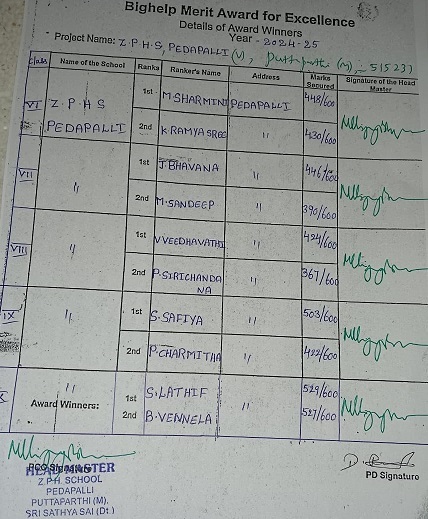 Bighelp Merit Award for Excellence
Details of Award Winners
Year - 2024-25
Project Name: Z.P.H.S, PEDAPALLI (V), puttaparthi (M) - 515237
Class Name of the School Ranks Ranker's Name Address Marks Secured Signature of the Head Master
VI Z.P.H.S PEDAPALLI 1st M SHARMINI PEDAPALLI 448/600
2nd K RAMYA SREE " 430/600
VII " 1st J BHAVANA " 446/600
2nd M. SANDEEP " 390/600
VIII " 1st V VEEDHAVATHI " 424/600
2nd P. SIRICHANDANA " 367/600
IX " 1st S. SAFIYA " 503/600
2nd P. CHARMITHA " 422/600
X " 1st S. LATHIF " 529/600
Award Winners: 2nd B. VENNELA 527/600
HEAD MASTER
Z.P.H SCHOOL
PEDAPALLI
PUTTAPARTHI (M).
SRI SATHYA SAI (Dt.)
PD Signature